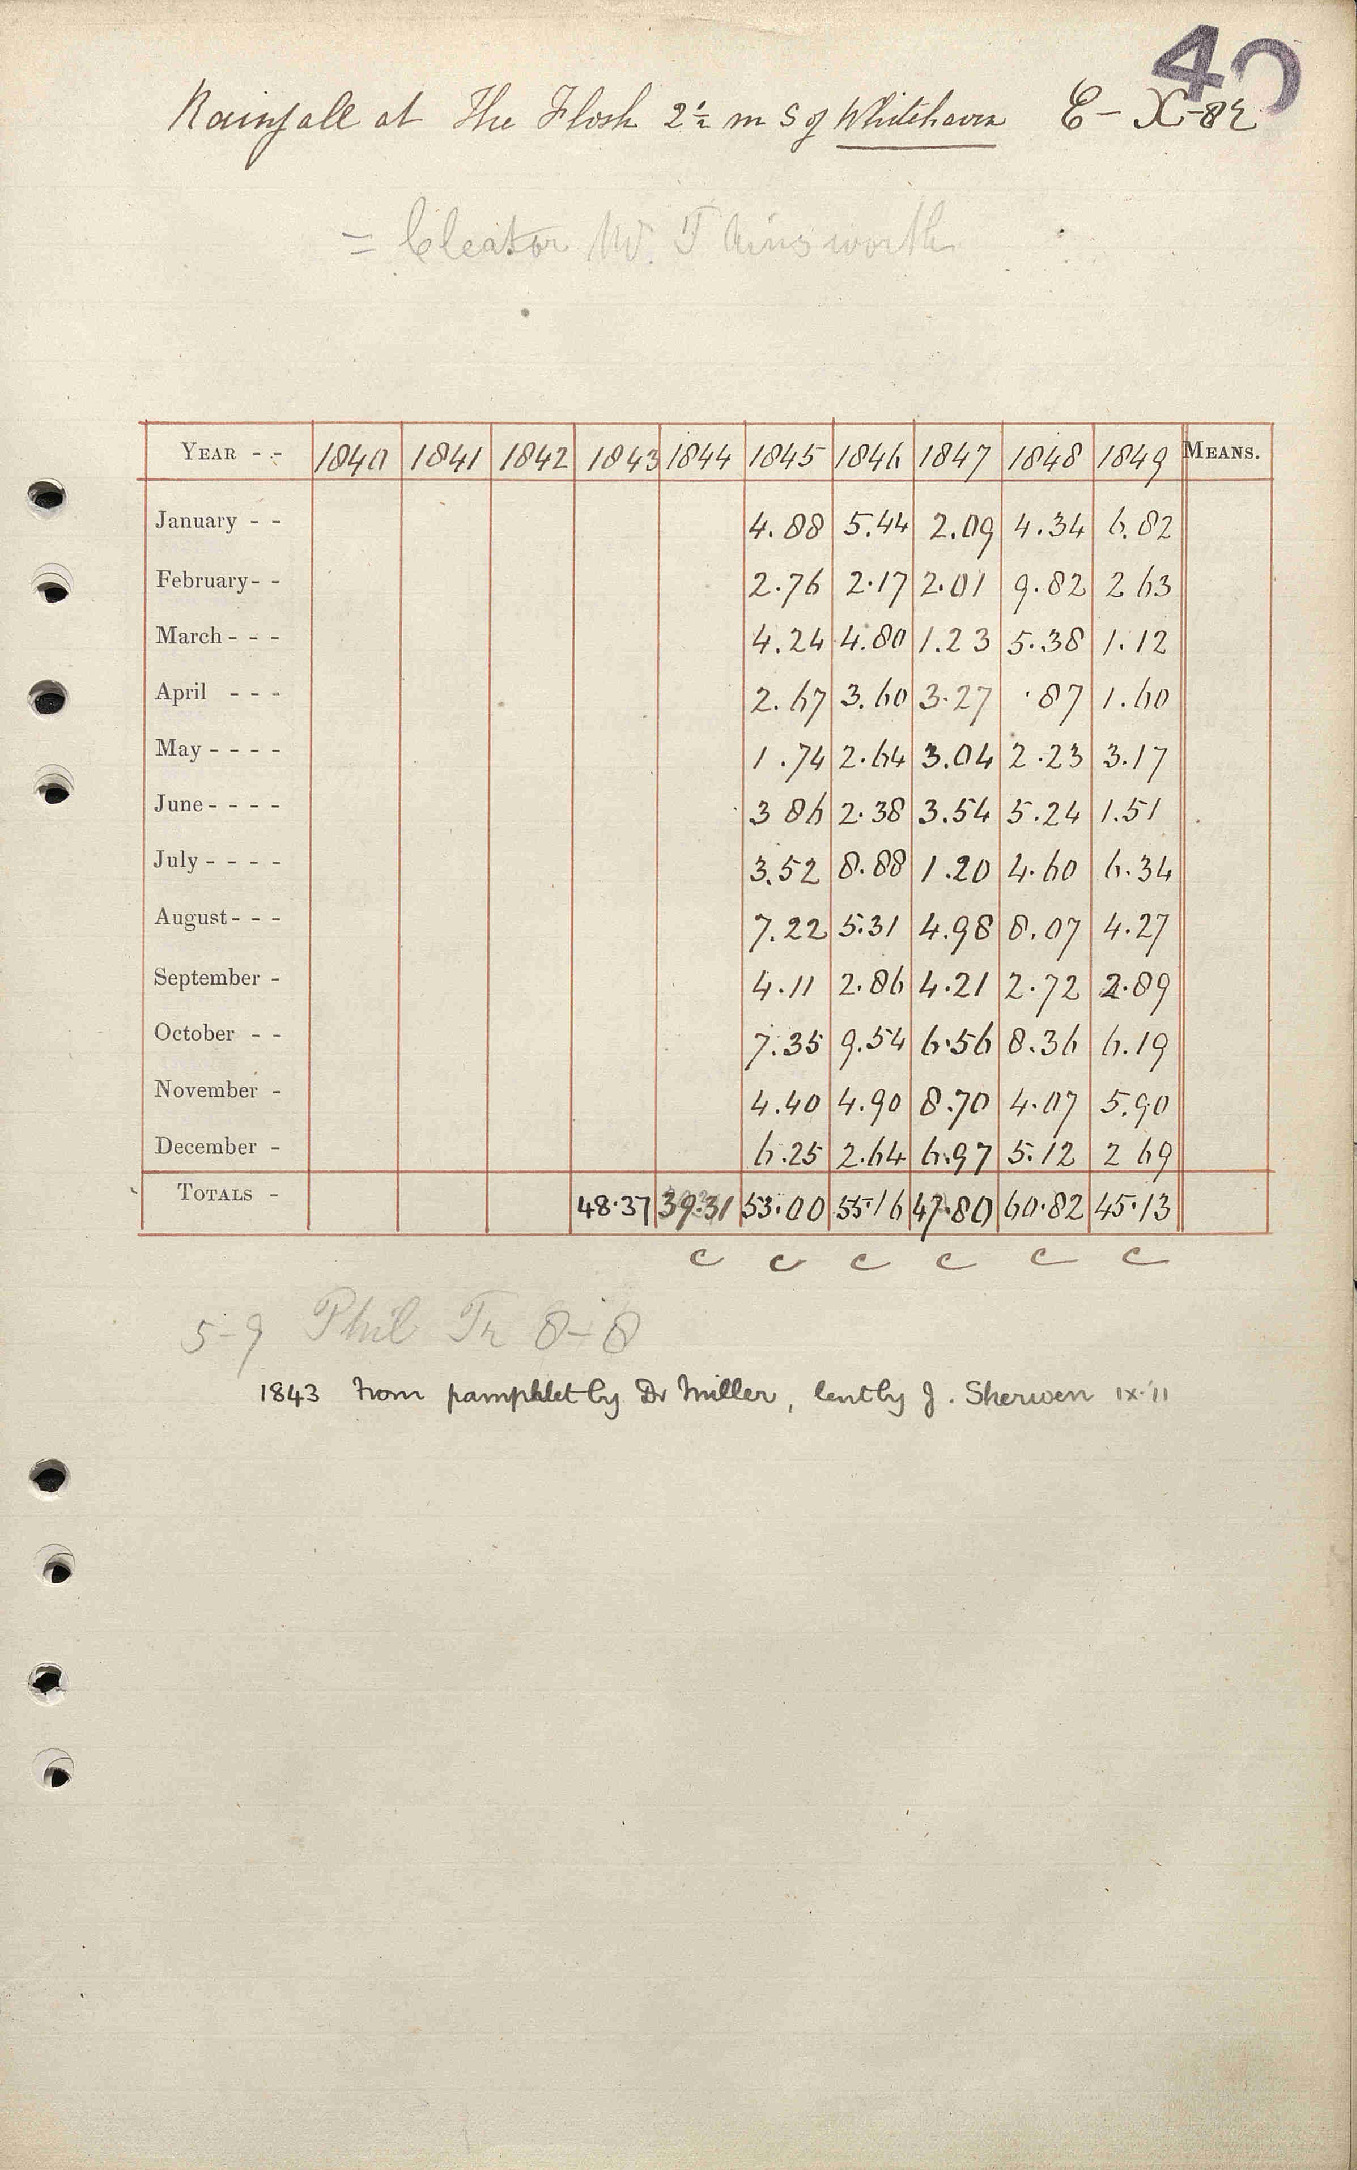 40
Rainfall at The Flosh 2½ m S of Whitehaven E-X-82
= Cleator W. T Ainsworth
YEAR - - 1840 1841 1842 1843 1844 1845 1846 1847 1848 1849 MEANS.
January - - 4.88 5.44 2.09 4.34 6.82
February - - 2.76 2.17 2.01 9.82 2 63
March - - - 4.24 4.80 1.23 5.38 1.12
April - - - 2.67 3.60 3.27 .87 1.60
May - - - - 1.74 2.64 3.04 2.23 3.17
June - - - - 3 86 2.38 3.54 5.24 1.51
July - - - - 3.52 8.88 1.20 4.60 6.34
August - - - 7.22 5.31 4.98 8.07 4.27
September - 4.11 2.86 4.21 2.72 2.89
October - - 7.35 9.54 6.56 8.36 6.19
November - 4.40 4.90 8.70 4.07 5.90
December - 6.25 2.64 6.97 5.12 2 69
TOTALS - 48.37 39.31 53.00 55.16 47.80 60.82 45.13
c c c c c c
5-9 Phil Tr 8-8
1843 from pamphlet by Dr Miller, lent by J. Sherwen ix.'11